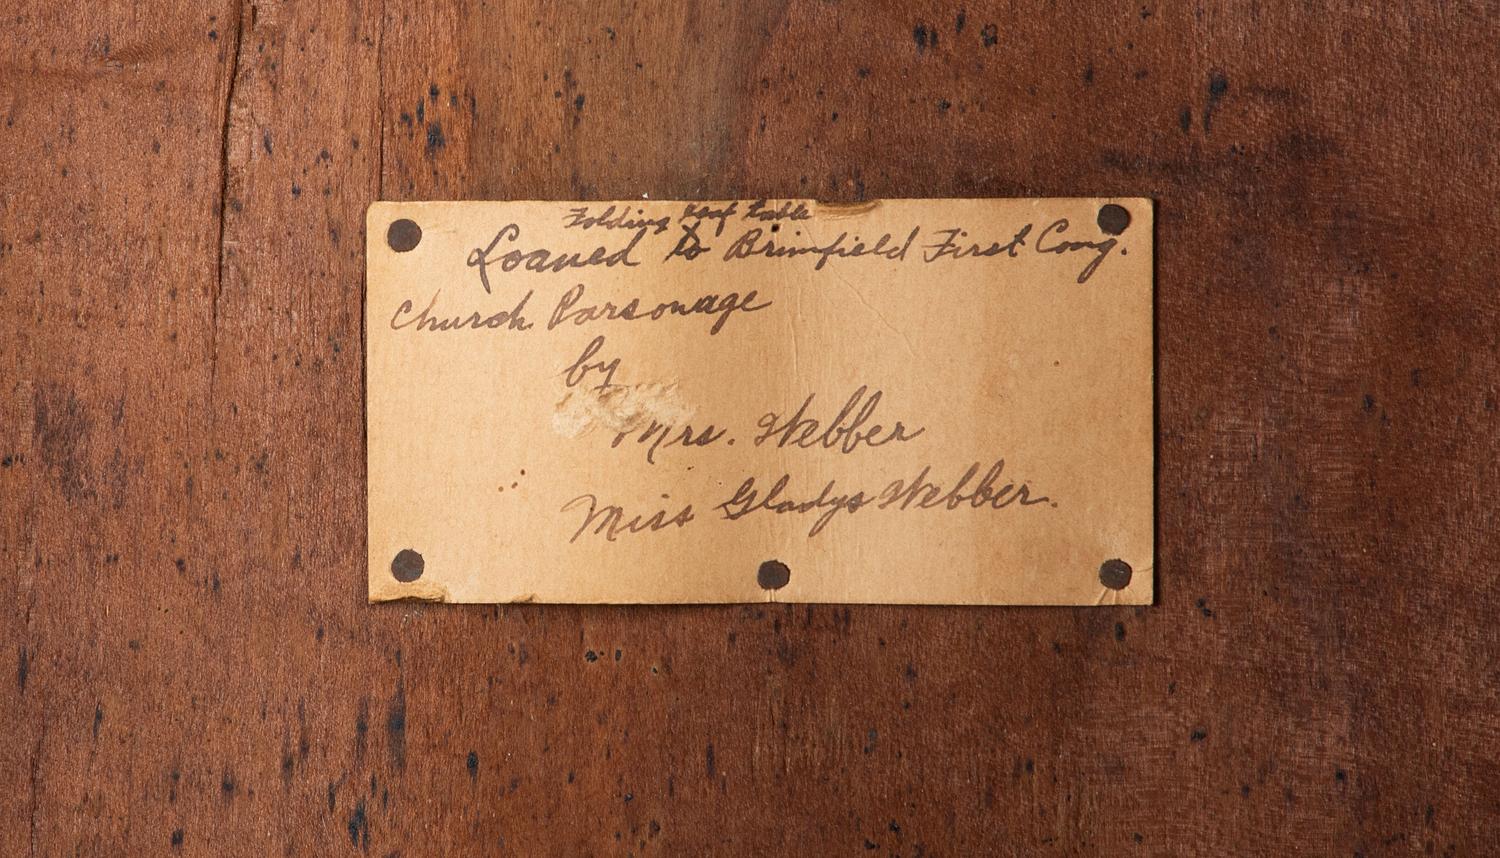 Folding leaf table
Loaned to Brimfield First Cong.
Church Parsonage
by
Mrs. Webber
Miss Gladys Webber.